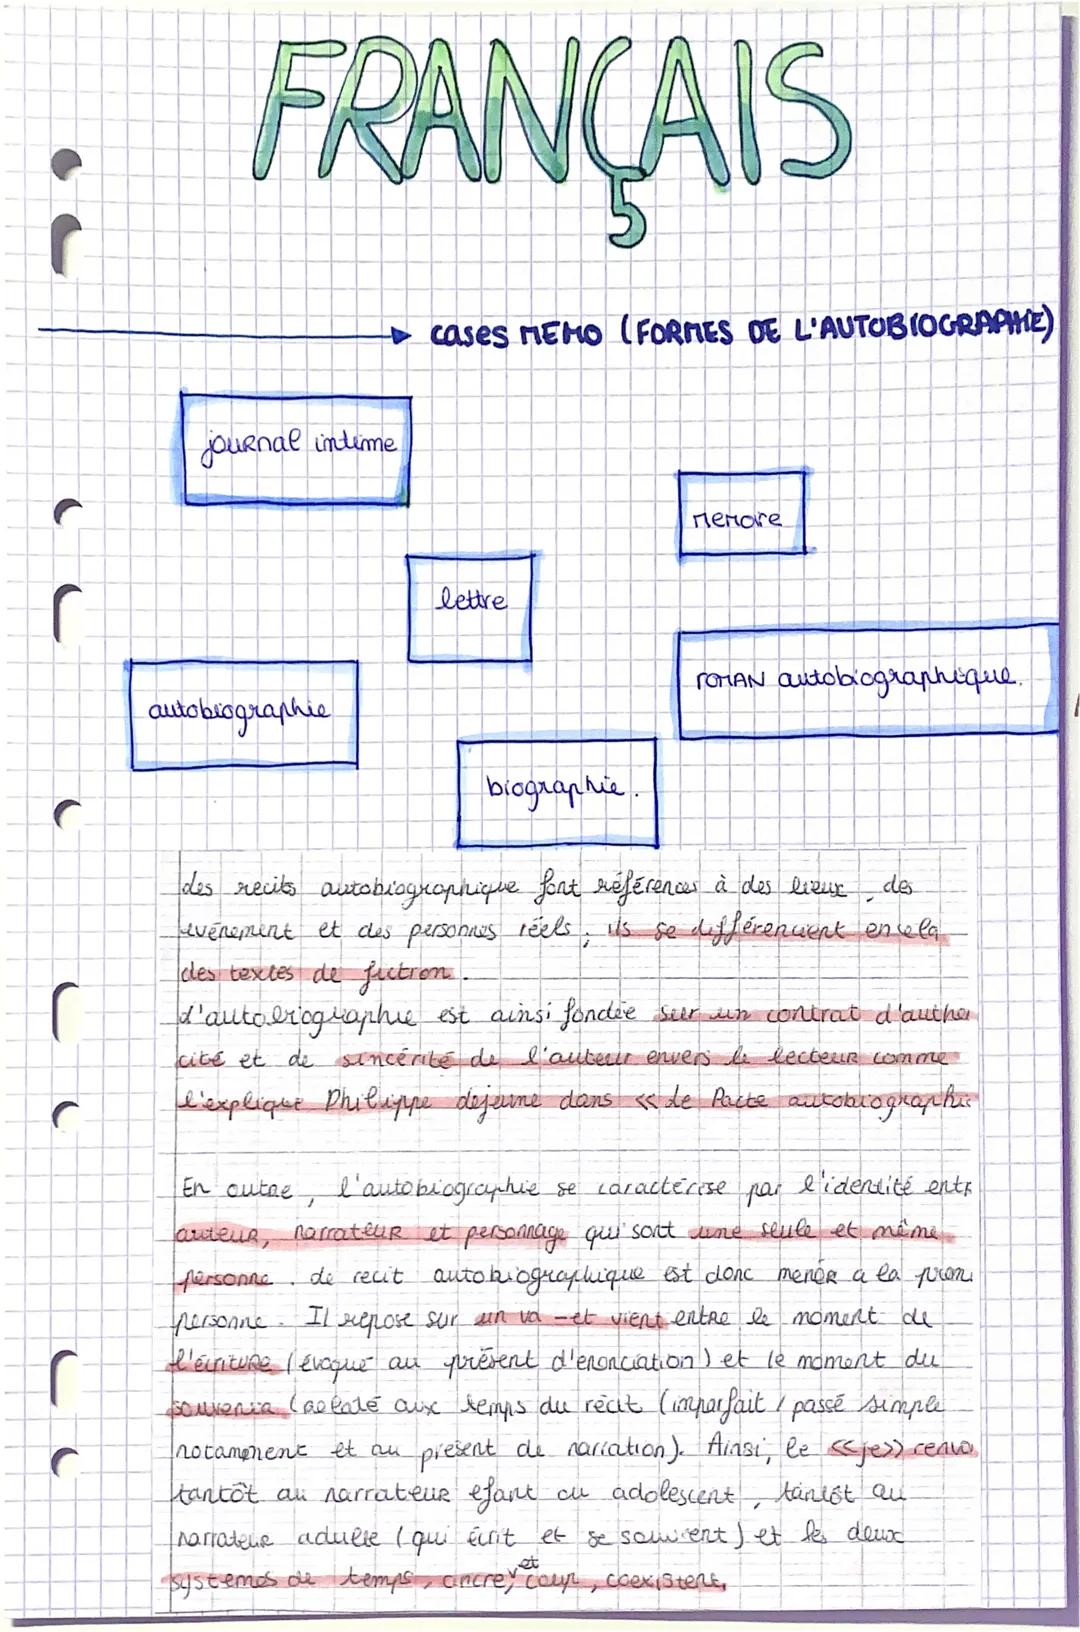 FRANÇAIS
cases MEMO (FORMES DE L'AUTOBIOGRAPHIE)
journal intime
memoire
lettre
roman autobiographique.
autobiographie
biographie.
des recits autobiographique font références à des lieux, des
événement et des personnes réels ; ils se différencient en cela
des textes de fiction.
L'autobiographie est ainsi fondée sur un contrat d'authen
cité et de sincérité de l'auteur envers le lecteur comme
l'explique Philippe dejeune dans << Le Pacte autobiographi
En outre, l'autobiographie se caractérise par l'identité entr
auteur, narrateur et personnage qui sont une seule et même
personne. Le recit autobiographique est donc mener a la prem
personne. Il repose sur un va-et vient entre le moment de
l'écriture (évoqué au présent d'enonciation) et le moment du
souvenir (relaté aux temps du récit (imparfait / passé simple
notamment et au présent de narration). Ainsi, le <<je>> renvo
tantôt au narrateur efant ou adolescent, tantôt au
narrateur adulte (qui écrit et se souvient) et les deux
systemes de temps, ancrey et coup, coexistent,